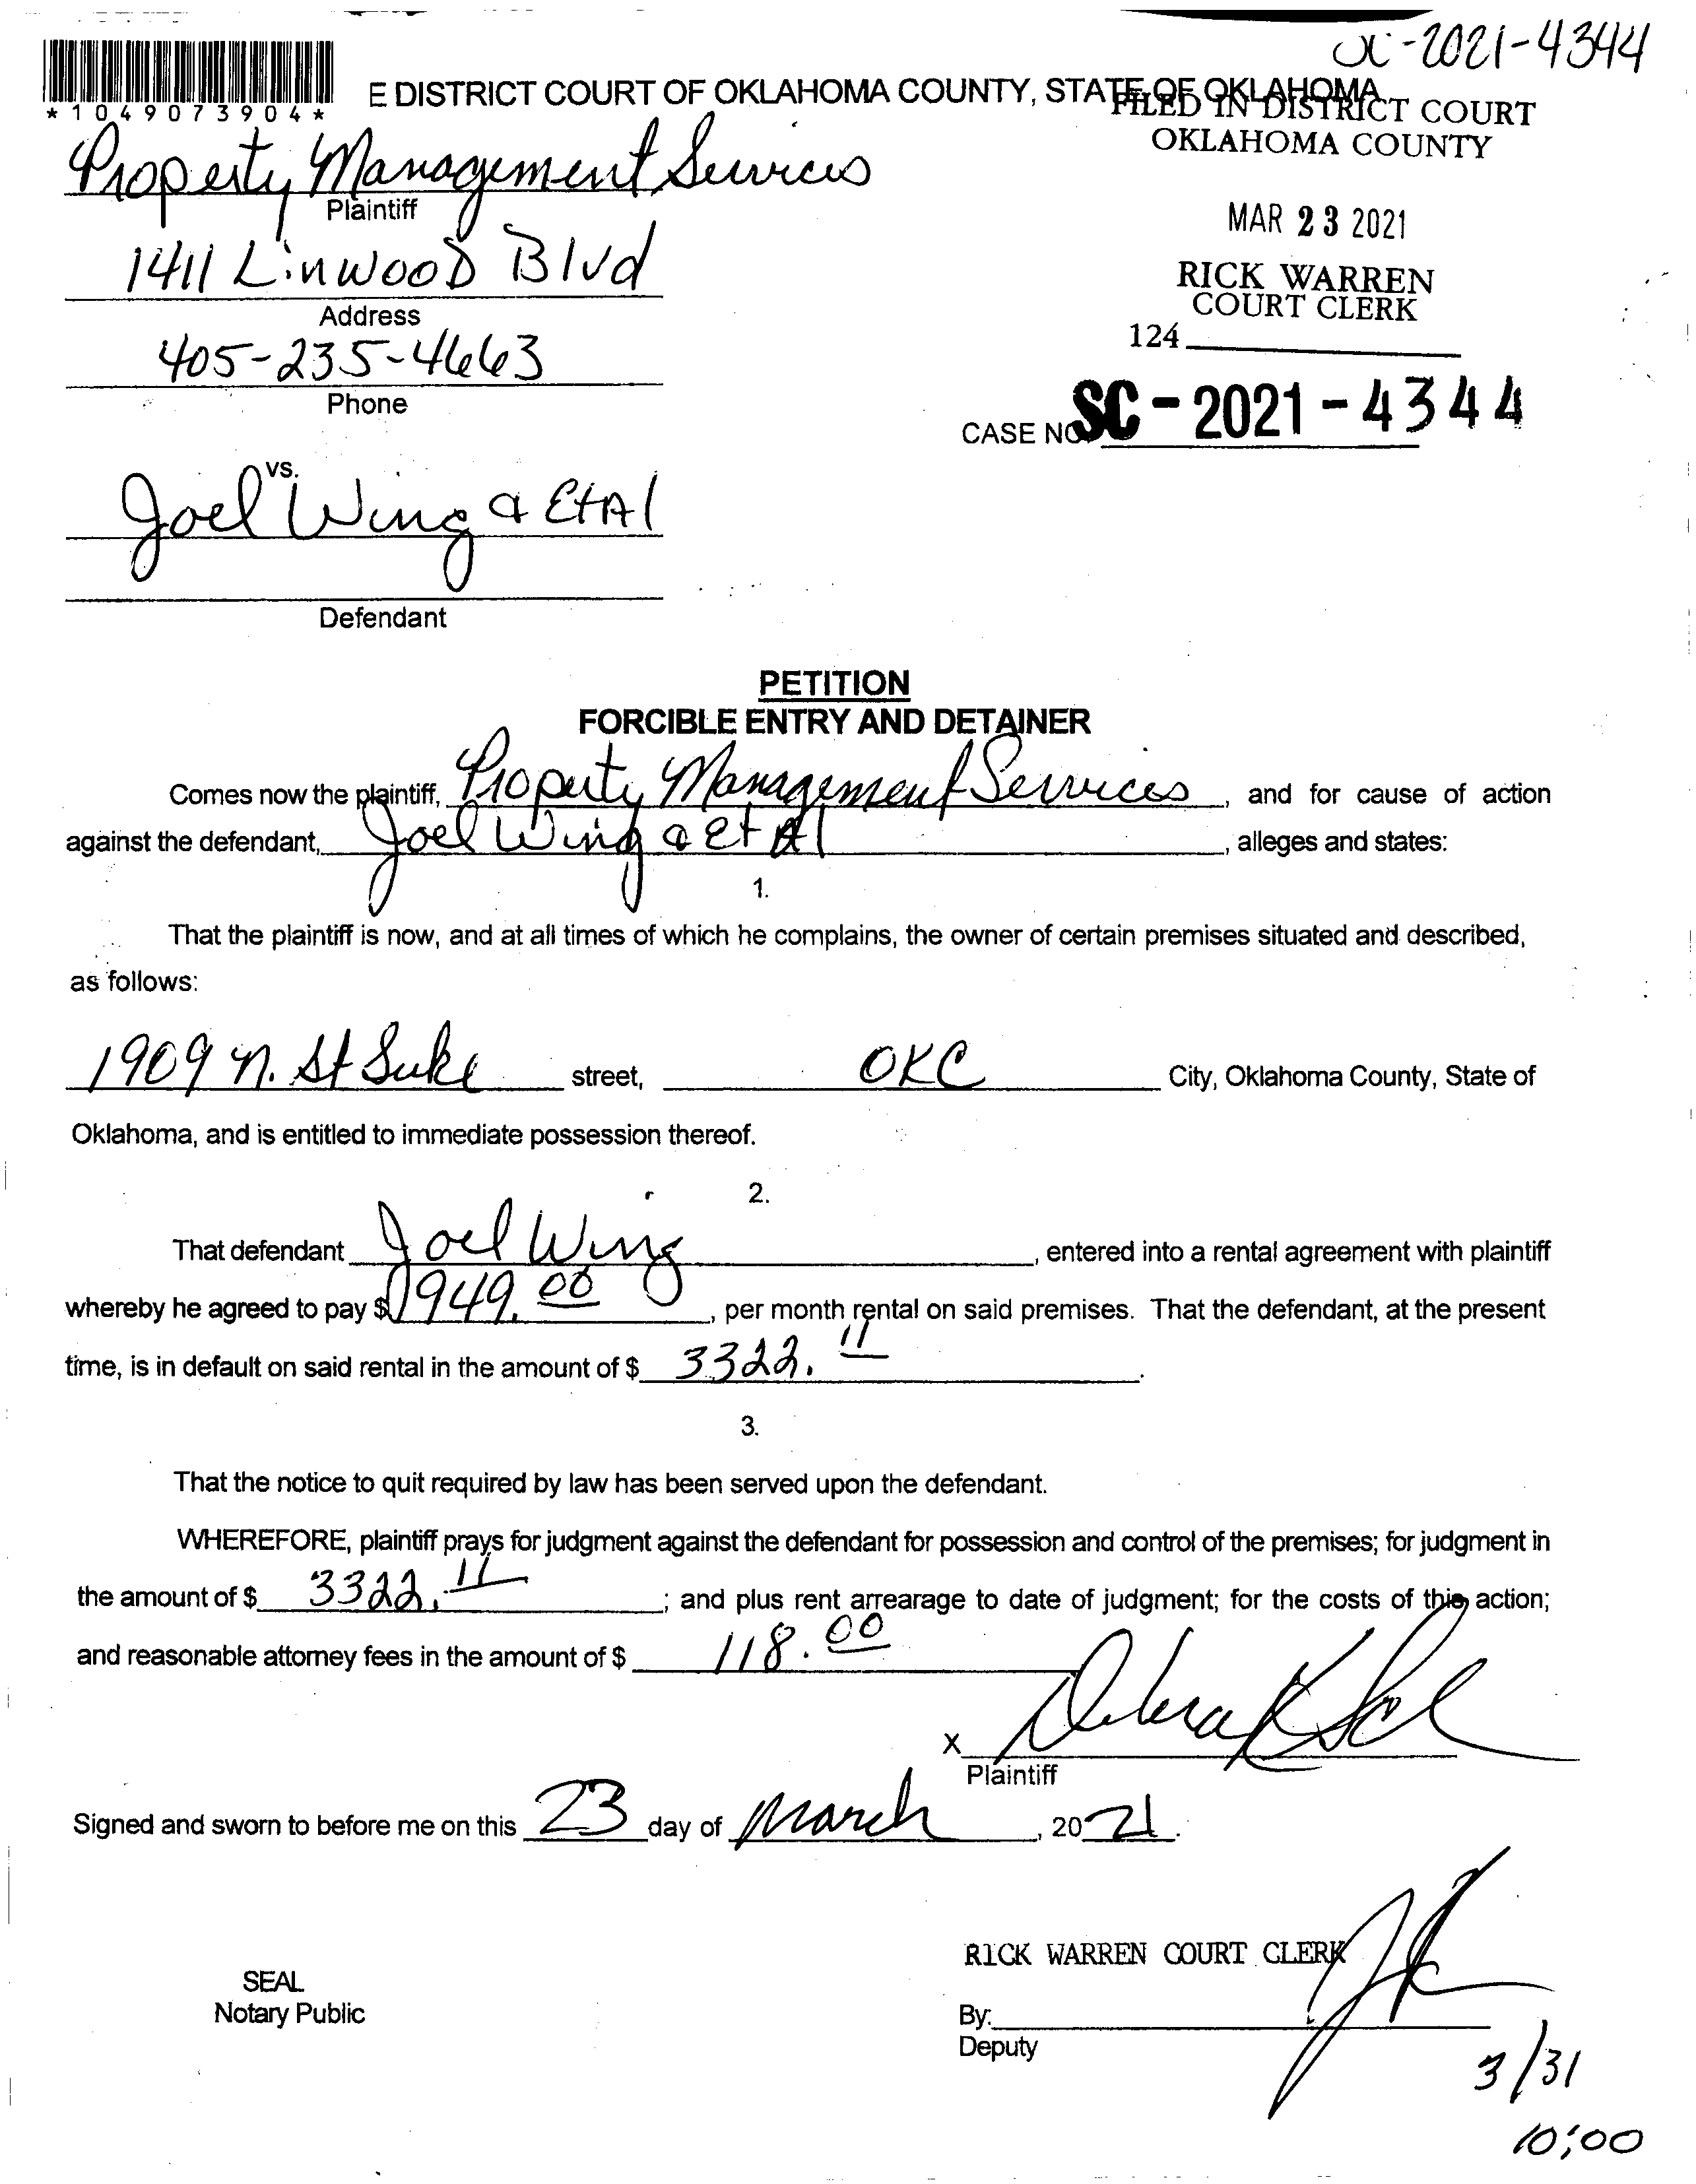 SC-2021-4344
*1049073904*
E DISTRICT COURT OF OKLAHOMA COUNTY, STATE OF OKLAHOMA
FILED IN DISTRICT COURT
OKLAHOMA COUNTY
Property Management Services
Plaintiff
MAR 23 2021
1411 Linwood Blvd
Address
RICK WARREN
COURT CLERK
124
405-235-4663
Phone
CASE NO. SC-2021-4344
vs.
Joel Wing & EtAl
Defendant
PETITION
FORCIBLE ENTRY AND DETAINER
Comes now the plaintiff, Property Management Services, and for cause of action
against the defendant, Joel Wing & Et Al, alleges and states:
1.
That the plaintiff is now, and at all times of which he complains, the owner of certain premises situated and described,
as follows:
1909 N. St Luke street, OKC City, Oklahoma County, State of
Oklahoma, and is entitled to immediate possession thereof.
2.
That defendant Joel Wing, entered into a rental agreement with plaintiff
whereby he agreed to pay $ 949.00, per month rental on said premises. That the defendant, at the present
time, is in default on said rental in the amount of $ 3322.11.
3.
That the notice to quit required by law has been served upon the defendant.
WHEREFORE, plaintiff prays for judgment against the defendant for possession and control of the premises; for judgment in
the amount of $ 3322.11; and plus rent arrearage to date of judgment; for the costs of this action;
and reasonable attorney fees in the amount of $ 118.00
X
Plaintiff
Signed and sworn to before me on this 23 day of March, 2021.
RICK WARREN COURT CLERK
SEAL
Notary Public
By:
Deputy
3/31
10:00